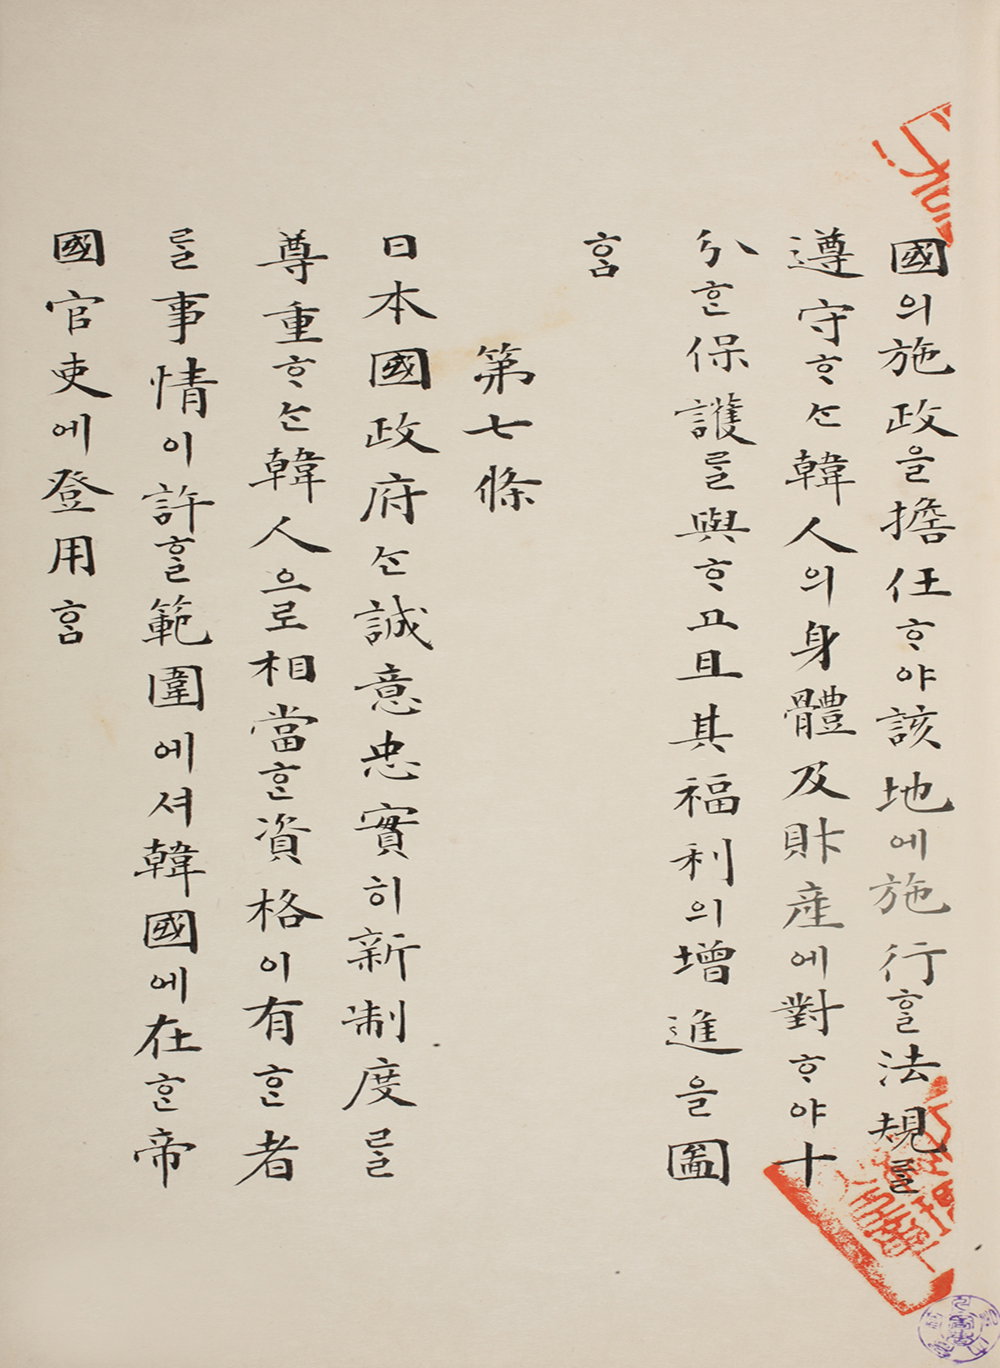 國의施政을擔任ᄒᆞ야該地에施行ᄒᆞᆯ法規를
遵守ᄒᆞᄂᆞᆫ韓人의身體及財産에對ᄒᆞ야十
分ᄒᆞᆫ保護를與ᄒᆞ고且其福利의增進을圖
홈
第七條
日本國政府ᄂᆞᆫ誠意忠實히新制度를
尊重ᄒᆞᄂᆞᆫ韓人으로相當ᄒᆞᆫ資格이有ᄒᆞᆫ者
를事情이許ᄒᆞᆯ範圍에셔韓國에在ᄒᆞᆫ帝
國官吏에登用홈